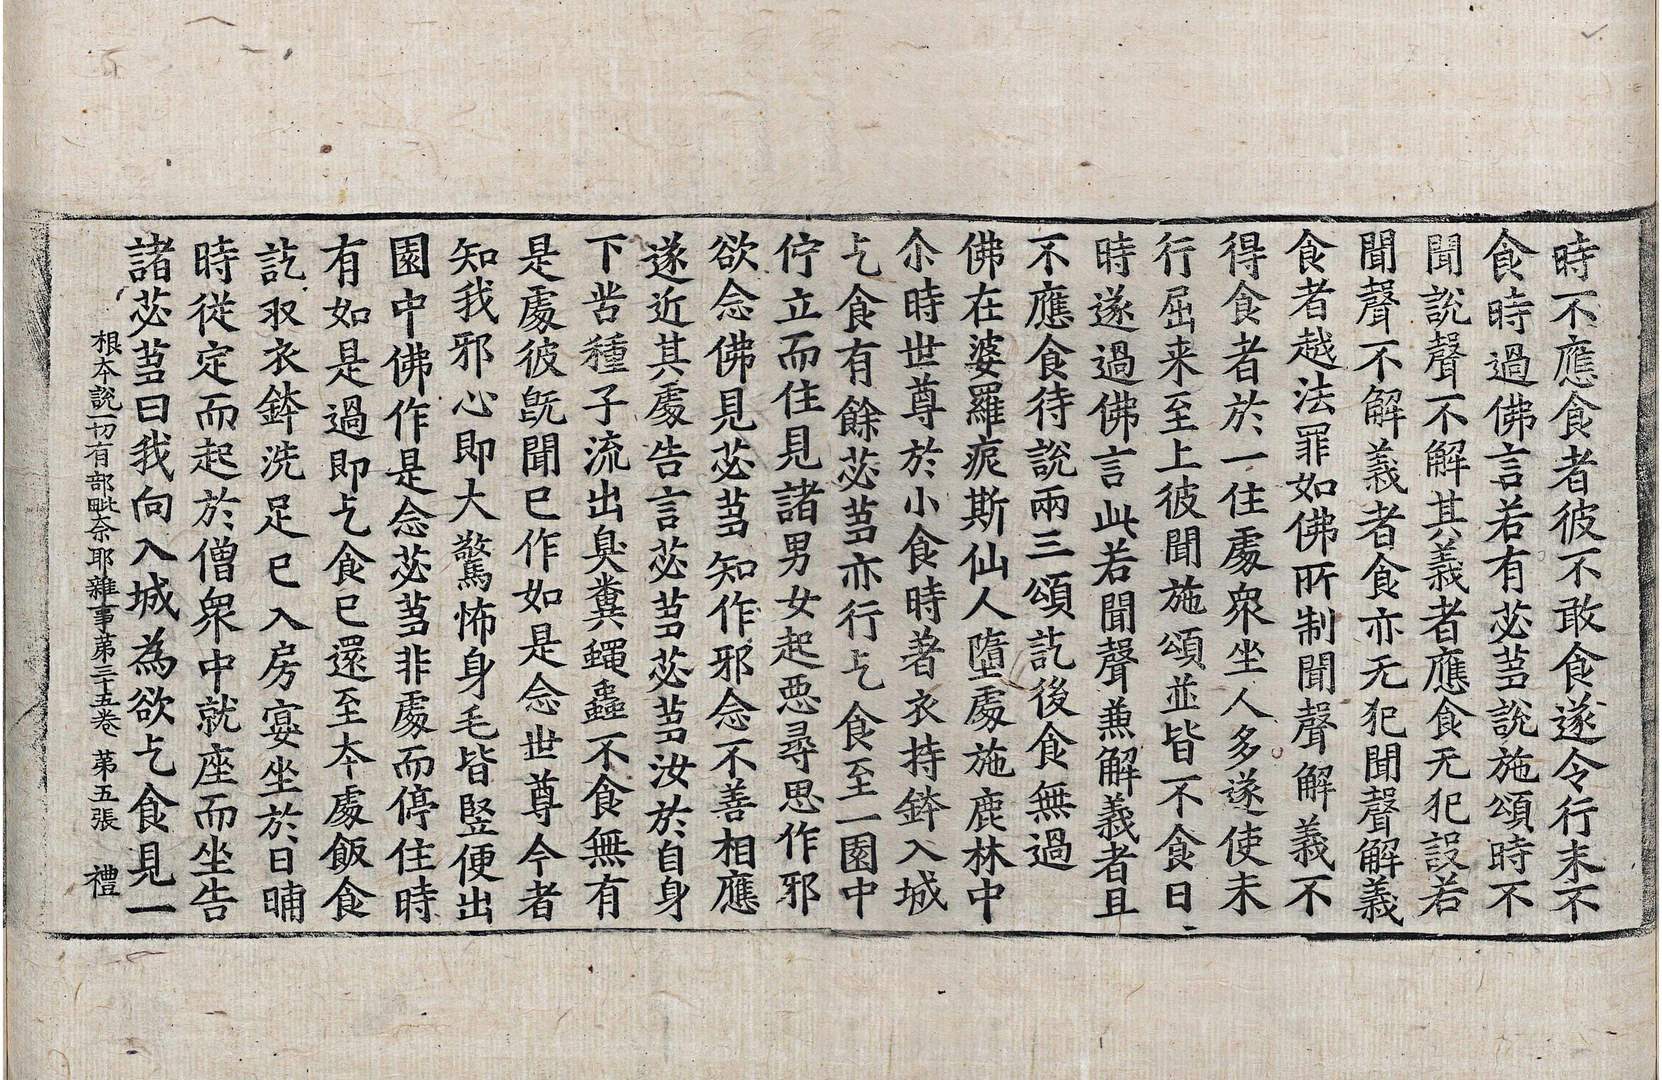 時不應食者彼不敢食遂令行末不
食時過佛言若有苾芻說施頌時不
聞說聲不解其義者應食无犯設若
聞聲不解義者食亦无犯聞聲解義
食者越法罪如佛所制聞聲解義不
得食者於一住處衆坐人多遂使未
行屈来至上彼聞施頌並皆不食日
時遂過佛言此若聞聲兼解義者且
不應食待說兩三頌訖後食無過
佛在婆羅痆斯仙人墮處施鹿林中
尒時世尊於小食時著衣持鉢入城
乞食有餘苾芻亦行乞食至一園中
佇立而住見諸男女起惡尋思作邪
欲念佛見苾芻知作邪念不善相應
遂近其處告言苾芻苾芻汝於自身
下苦種子流出臭糞蠅蟲不食無有
是處彼旣聞已作如是念世尊今者
知我邪心即大驚怖身毛皆竪便出
園中佛作是念苾芻非處而停住時
有如是過即乞食已還至本處飯食
訖取衣鉢洗足已入房宴坐於日晡
時從定而起於僧衆中就座而坐告
諸苾芻曰我向入城為欲乞食見一
根本說一切有部毗奈耶雜事第三十五卷 第五張 禮